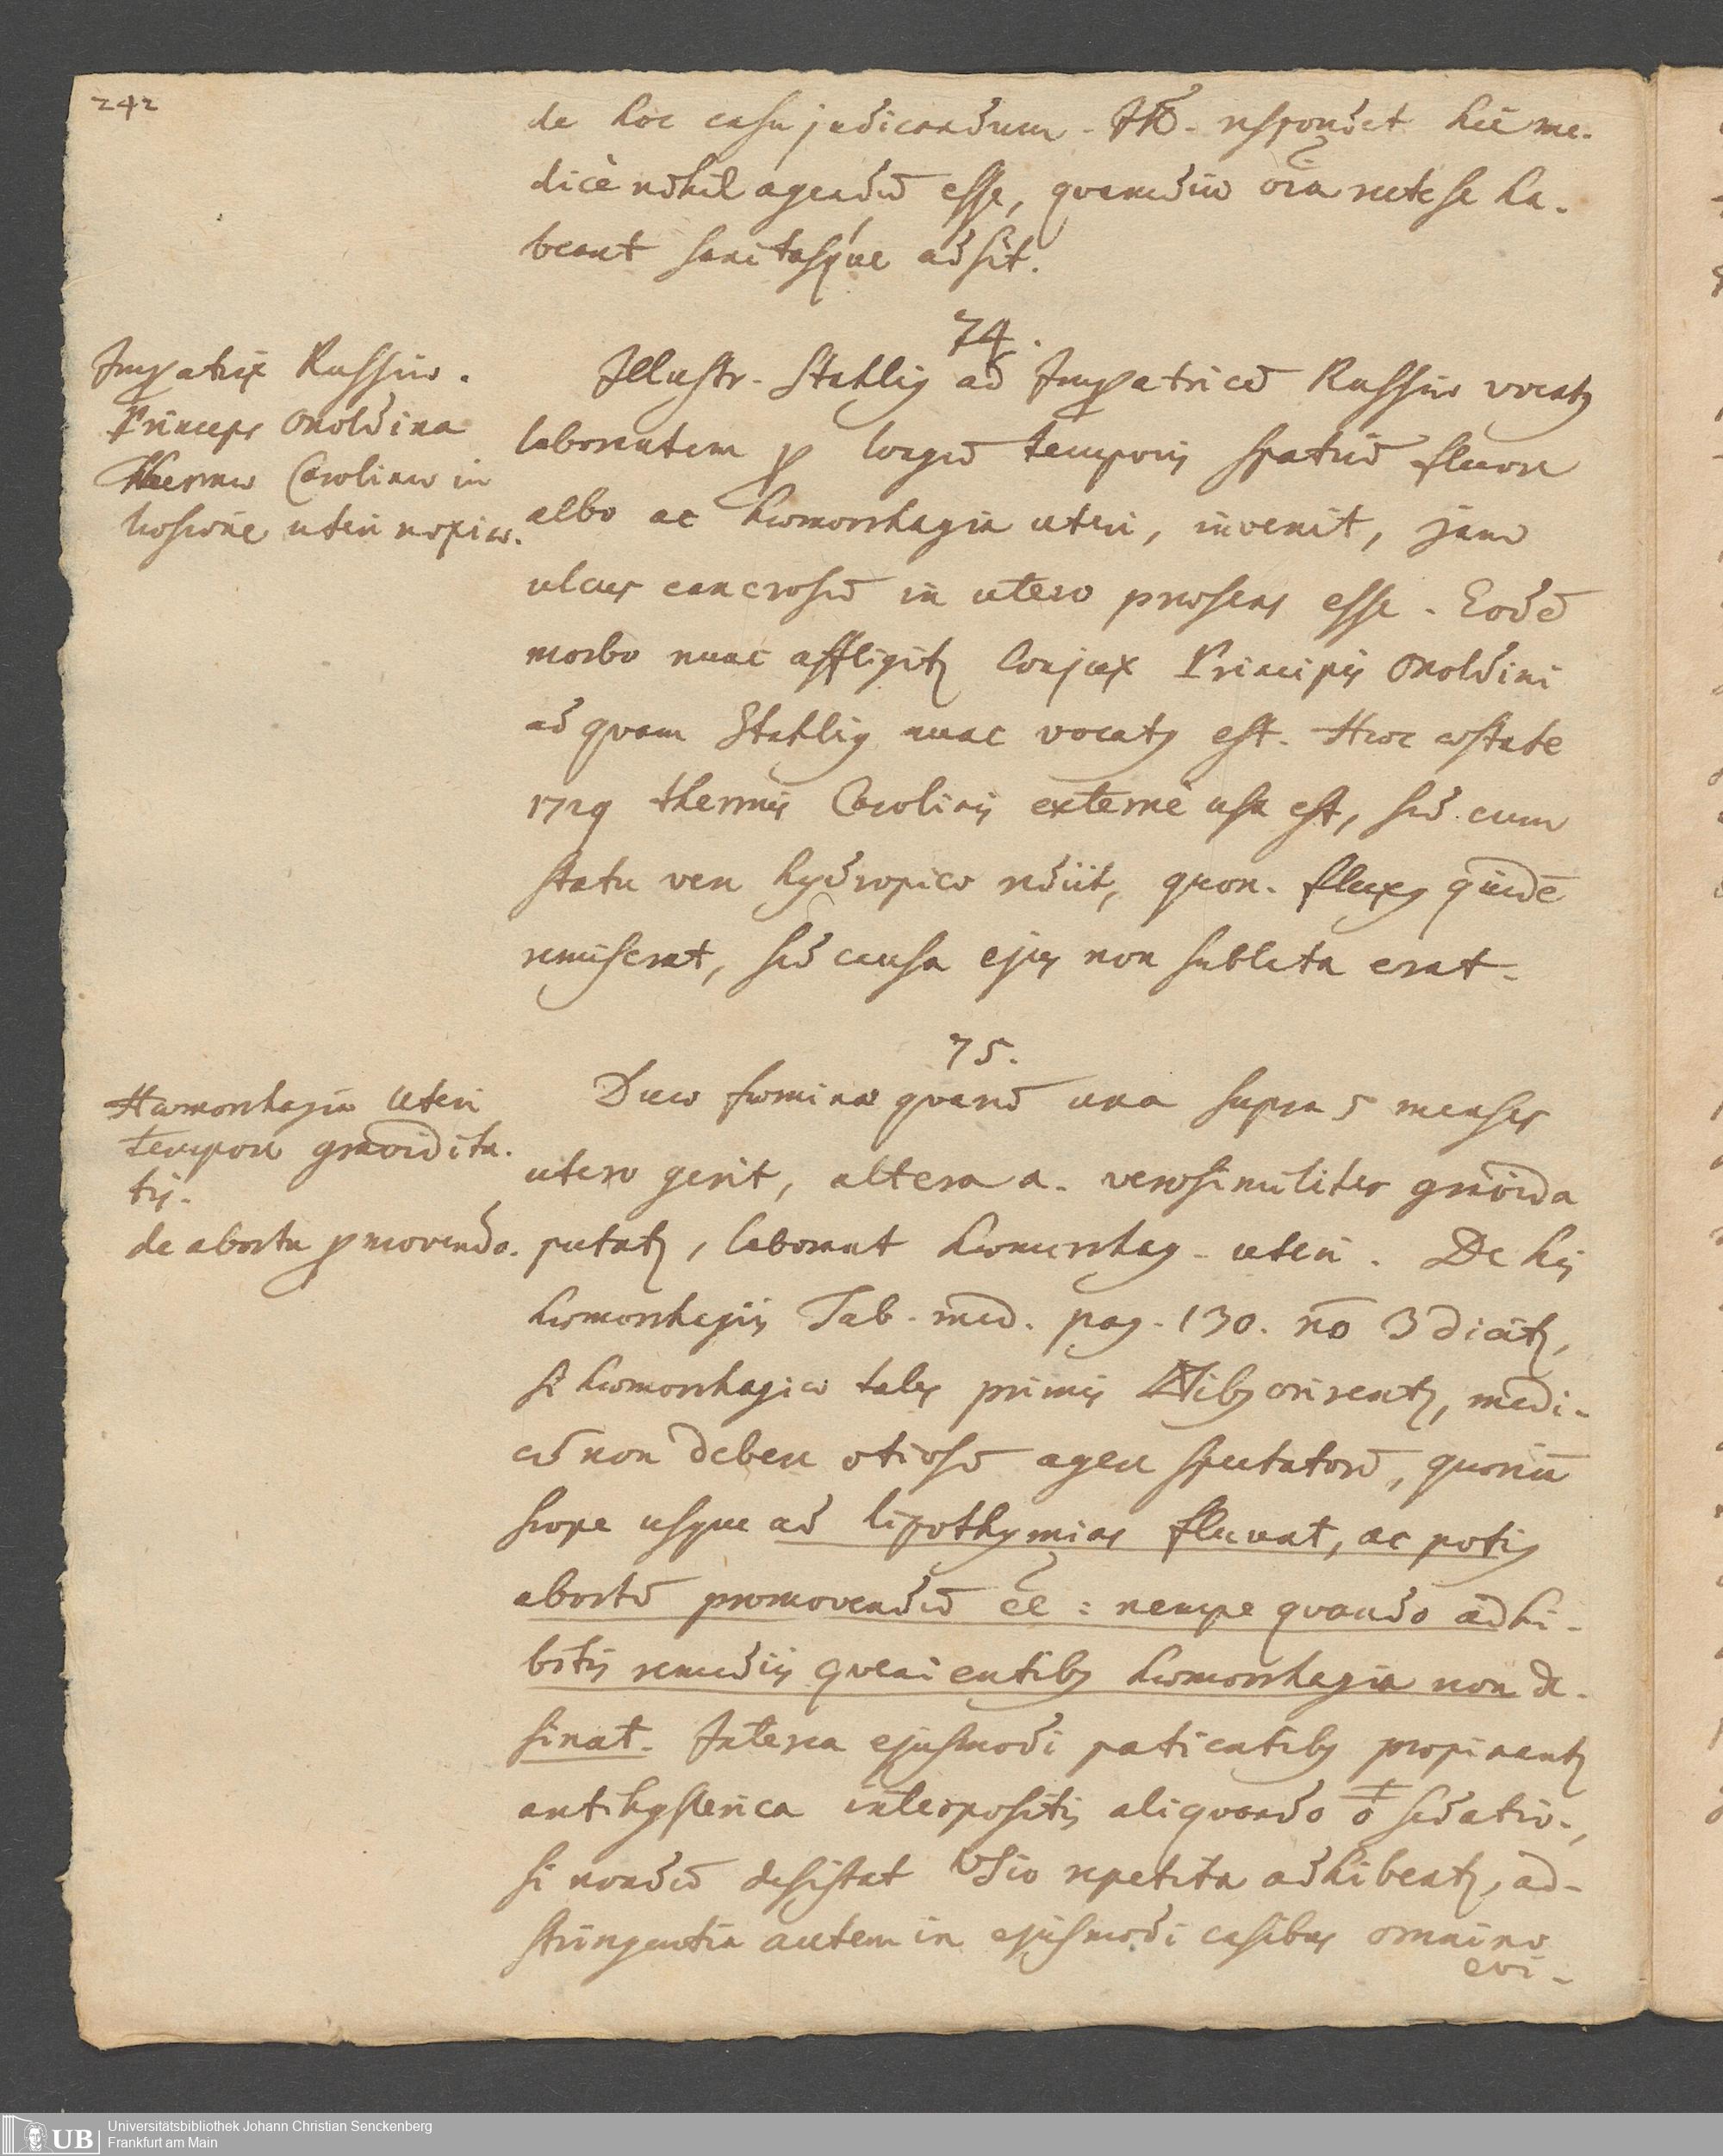 242
de hoc casu judicandum. respondet hic me-
dicè nihil agendū esse, quamdiu oīa recte se ha-
beant sanitasque adsit.
74.
Imperatrix Russiæ.
Princeps Onoldina
Thermæ Carolinæ in
læsione uteri noxiæ.
Illustr. Stahlius ad Imperatricē Russiæ vocatus
laborantem per longū temporis spatiū fluore
albo ac hæmorrhagia uteri, invenit, jam
ulcus cancrosū in utero præsens esse. Eodē
morbo nunc affligitur Conjux Principis Onoldini
ad quam Stahlius nunc vocatus est. Hac æstate
1729 thermis Carolinis externè usa est, sed cum
statu vere hydropico rediit, quon. fluxus quidē
remiserat, sed causa ejus non sublata erat.
75.
Hæmorrhagia Uteri
tempore gravidita-
tis.
de abortu promovendo.
Duæ fœminæ quarū una supra 5 menses
utero gerit, altera a. verosimiliter gravida
putatur, laborant hæmorrhag. uteri. De his
hæmorrhagiis Tab. med. pag. 130. no 3 dicitur,
si hæmorrhagiæ tales primis orirentur, medi-
cū non debere otiosū agere spectatorē, quoniā
sæpe usque ad lipothymias fluant, ac potius
abortū promovendū eē: nempe quando adhi-
bitis remediis convenientibus hæmorrhagia non de-
sinat. Interea ejusmodi patientibus propinantur
antihysterica interpositis aliquando sedativ.,
si nondū desistat VSio repetita adhibeatur, ad-
stringentia autem in ejusmodi casibus omnino
evi-
Universitätsbibliothek Johann Christian Senckenberg
Frankfurt am Main
UB